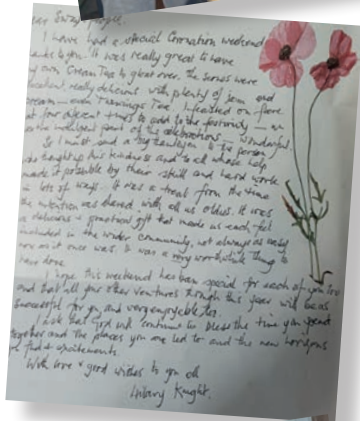 Dear Swaz people,
I have had a special Coronation weekend
thanks to you. It was really great to have
my own Cream Tea to gloat over. The scones were
excellent, really delicious with plenty of jam and
cream – even Twinings Tea. I feasted on
four different times to add to the festivity – an
indulgent part of the celebrations – wonderful.
So I must send a big thankyou to the person
who thought up this kindness and to all whose help
made it possible by their skill and hard work
in lots of ways. It was a treat from the time
the intention was shared with all us oldies. It was
a delicious & practical gift that made us each feel
included in the wider community, not always as easy
now as it once was. It was a very worthwhile thing to
have done.
I hope this weekend has been special for each of you too
and that all your other ventures through this year will be as
successful for you and very enjoyable too.
I ask that God will continue to bless the time you spend
together and the places you are led to and the new horizons
you find & excitements.
With love & good wishes to you all
Hilary Knight.